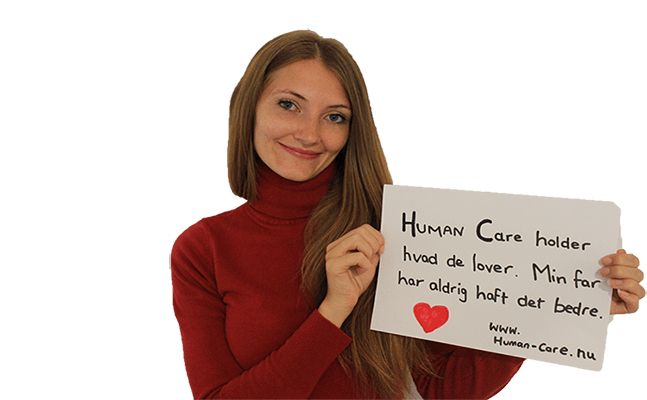 Human Care holder
hvad de lover. Min far
har aldrig haft det bedre.
www.
Human-Care.nu